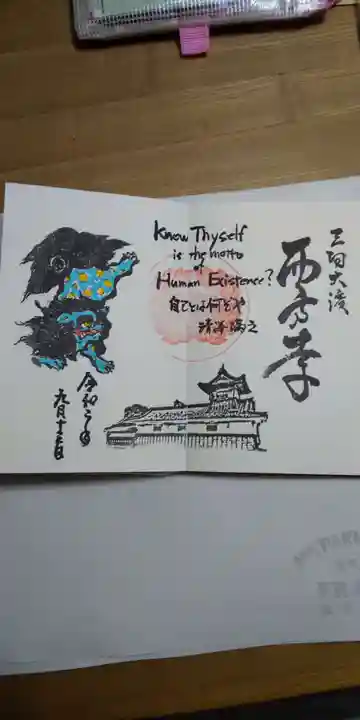 三河大濱
西方寺
Know Thyself
is the motto
of
Human Existence?
自己とは何ぞや
清澤満之
令和 年
九月十三日